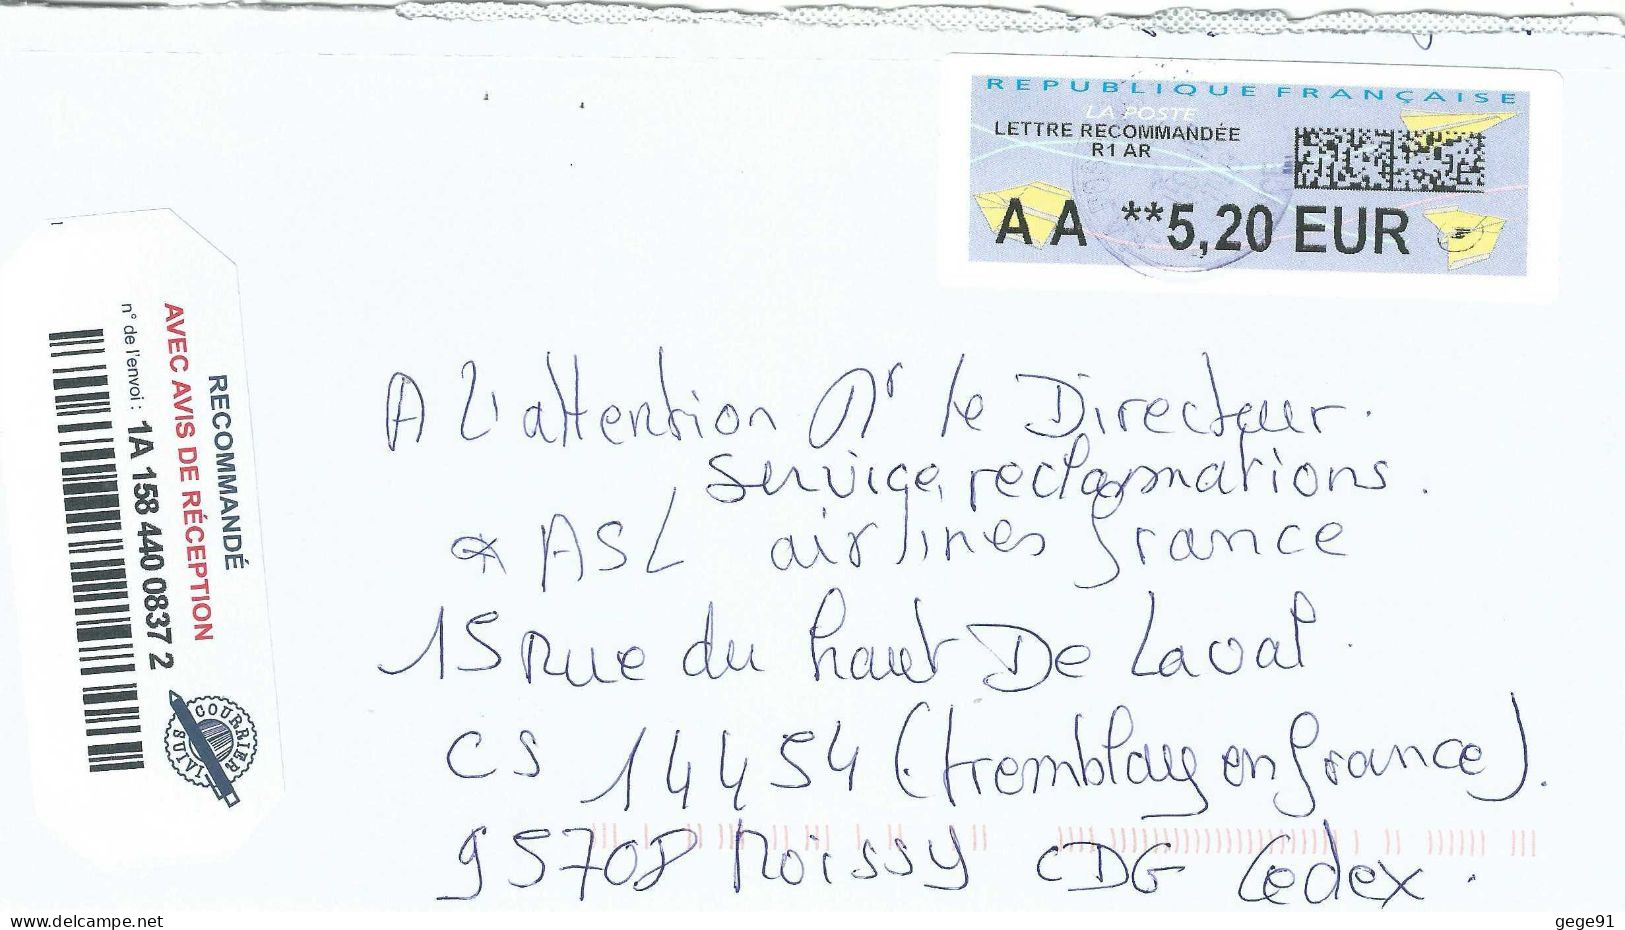 REPUBLIQUE FRANÇAISE
LA POSTE
LETTRE RECOMMANDÉE
R1 AR
AA **5,20 EUR
RECOMMANDÉ
AVEC AVIS DE RÉCEPTION
n° de l'envoi : 1A 158 440 0837 2
COURRIER SUIVI
A L'attention Mr le Directeur.
Service reclamations.
* ASL airlines france
15 Rue du haut De Laval.
CS 14454 (tremblay en france).
95708 Roissy CDG Cedex.
delcampe.net
gege91